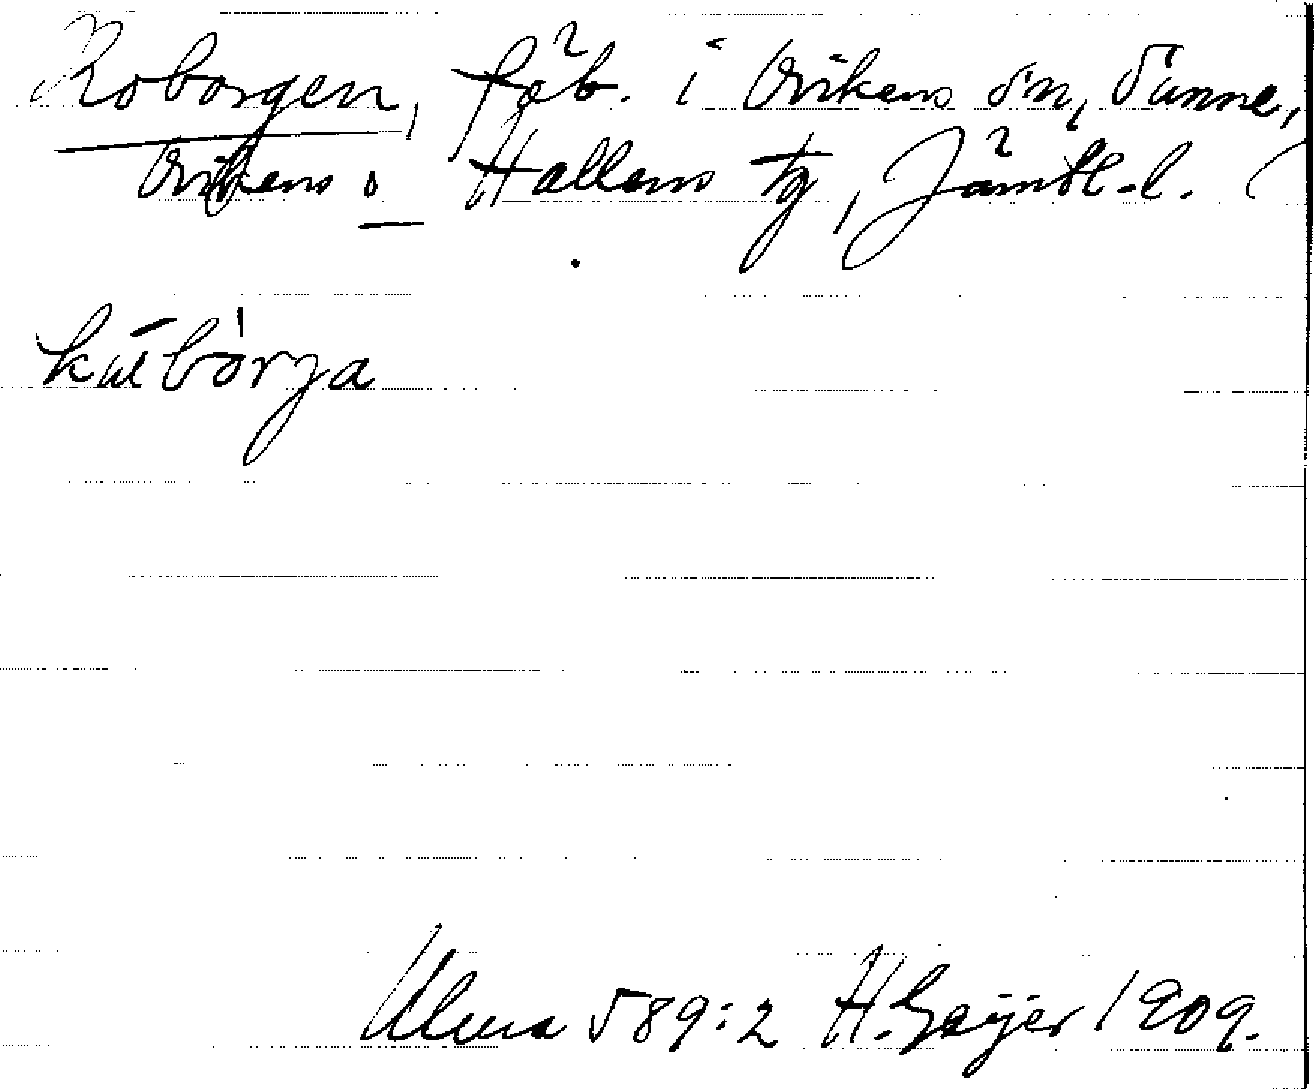 Koborgen, fäb. i Ovikens sn, Sunne,
Ovikens o Hallens tg, Jämtl-l.
kubörja
Ulma 589:2 H. Geijer 1909.